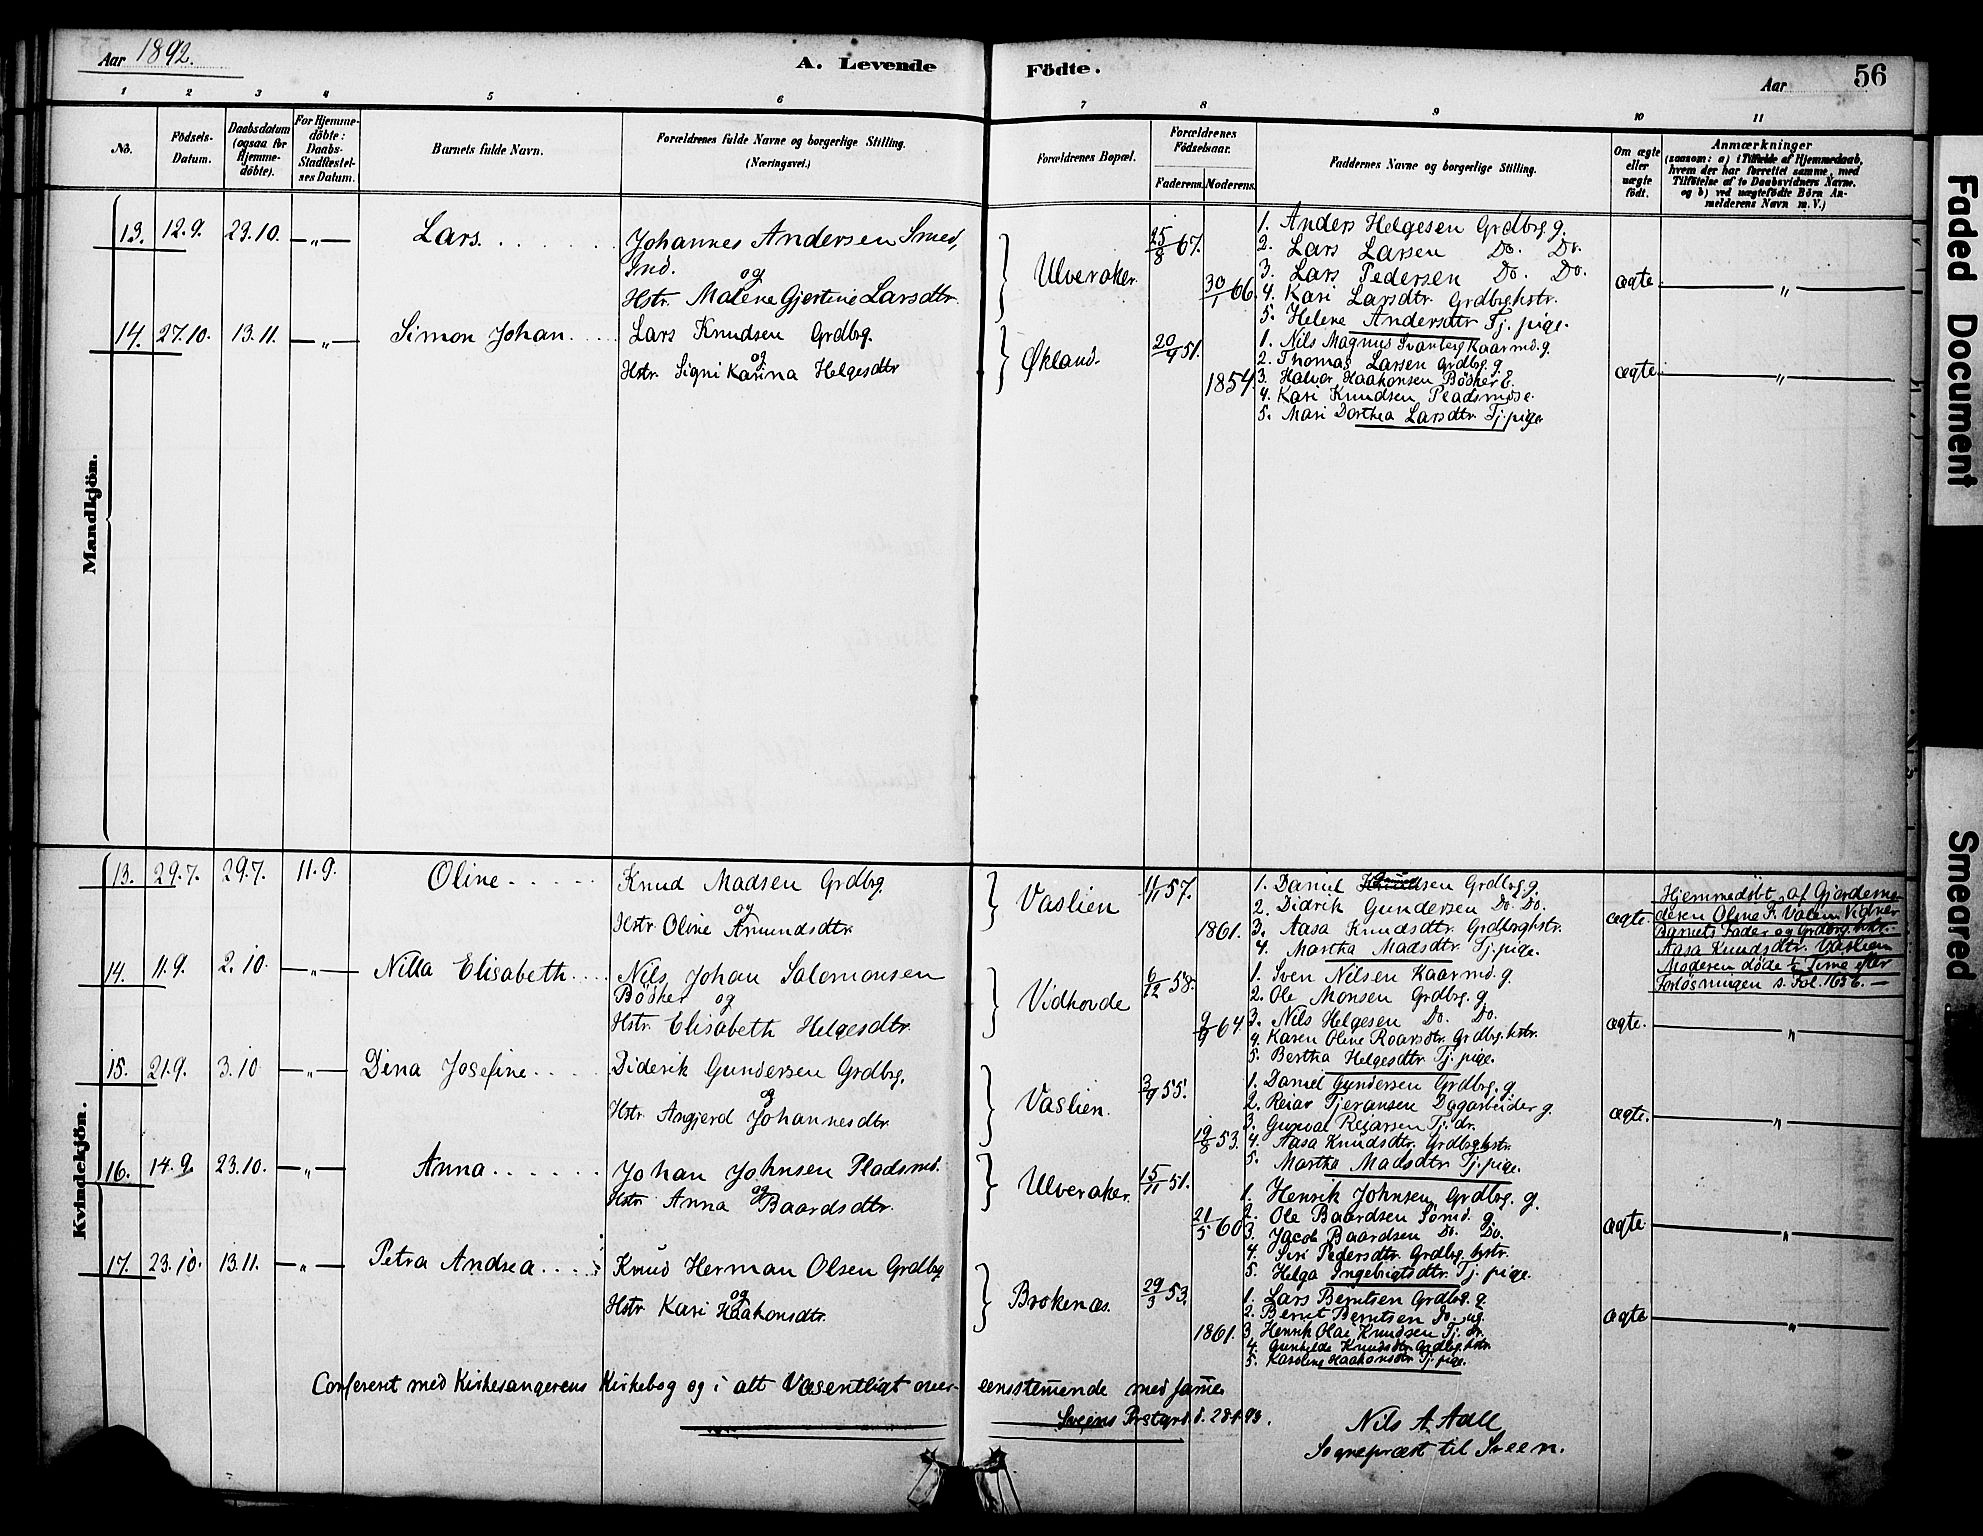 Aar 1892.
A. Levende Födte.
Aar 56
1 2 3 4 5 6 7 8 9 10 11
No.
Födsels-Datum.
Daabsdatum (ogsaa for Hjemme-döbte).
For Hjemme-döbte: Daabs-Stadfæstel-ses Datum.
Barnets fulde Navn.
Forældrenes fulde Navne og borgerlige Stilling.
(Næringsvei.)
Forældrenes Bopæl.
Forældrenes Födselsaar.
Faderens. Moderens.
Faddernes Navne og borgerlige Stilling.
Om ægte eller uægte födt.
Anmærkninger
(saasom: a) i Tilfælde af Hjemmedaab,
hvem der har forrettet samme, med
Tilföielse af to Daabsvidners Navne.
og b) ved uægtefödte Börn An-
melderens Navn m. V.)
Mandkjön.
13. 12.9. 23.10. —„— Lars.
Johannes Andersen Smed,
Ind.
og
Hstr. Malene Gjertine Larsdtr.
Ulveraker
25/8 67.
30/1 66.
1. Anders Helgesen Grdbrg g.
2. Lars Larsen Do. Do.
3. Lars Pedersen Do. Do.
4. Kari Larsdtr. Grdbrghstr.
5. Helene Andersdtr Tj. pige.
ægte „
14. 27.10. 13.11. —„— Simon Johan.
Lars Knudsen Grdbrg.
og
Hstr. Signi Karina Helgesdtr
Økland.
20/9 51.
1854
1. Nils Magnus Svanberg Kaarmd. g.
2. Thomas Larsen Grdbrg. g.
3. Halvor Haakonsen Bödker E.
4. Kari Knudsen Pladsmdse.
5. Mari Dorthea Larsdtr Tj. pige
ægte „
Kvindekjön.
13. 29.7. 29.7. 11.9. Oline
Knud Madsen Grdbrg.
og
Hstr. Oline Amundsdtr.
Vaslien
57.
1861.
1. Daniel Grdbrg g.
2. Didrik Gundersen Do. Do.
3. Aasa Knudsdtr. Grdbrghstr.
4. Martha Madsdtr. Tj. pige.
ægte.
Hjemmedöbt af Gjordemo-
deren Oline F. Valen. Vidner
Barnets Fader og Grdbrg. hstr.
Aasa Knudsdtr. Vaslien
Moderen döde ½ Time efter
Forlösningen s. Fol. 165 6. —
14. 11.9. 2.10. —„— Nilla Elisabeth
Nils Johan Salomonsen
Bödker og
Hstr. Elisabeth Helgesdtr.
Vidhovde
6/12 58.
9/9 64
1. Sven Nilsen Kaarmd. g.
2. Ole Monsen Grdbrg. g.
3. Nils Helgesen Do. Do.
4. Karen Oline Roarsdtr. Grdbrg. hstr.
5. Bertha Helgesdtr. Tj. pige.
ægte. „
15. 21.9. 3.10 —„— Dina Josefine
Diderik Gundersen Grdbrg.
og
Hstr. Angjerd Johannesdtr.
Vaslien.
3/9 55.
19/8 53.
1. Daniel Gundersen Grdbrg. g.
2. Reiar Tjeransen Dagarbeider g.
3. Gunval Reiarsen Tj. dr.
4. Aasa Knudsdtr. Grdbrghstr.
5. Martha Madsdtr. Tj. pige.
ægte. „
16. 14.9. 23.10. —„— Anna
Johan Johnsen Pladsmd.
og
Hstr. Anna Baardsdtr.
Ulveraker.
15/11 51.
21/5 60
1. Henrik Johnsen Grdbrg. g.
2. Ole Baardsen Sömd. g.
3. Jacob Baardsen Do. Do.
4. Siri Pedersdtr. Grdbrg. hstr.
5. Helga Ingebrigtsdtr. Tj. pige.
ægte „
17. 23.10. 13.11. —„— Petra Andrea
Knud Herman Olsen Grdbrg
og
Hstr. Kari Haakonsdtr.
Brokenæs.
29/3 53.
1861.
1. Lars Berntsen Grdbrg. g.
2. Bernt Berntsen Do. ug.
3. Henrik Olai Knudsen Tj. dr.
4. Gunhilde Knudsdtr Grdbrg.hstr.
5. Karoline Haakonsdtr Tj. pige.
ægte „
Confereret med Kirkesangerens Kirkebog og i alt Væsentligt over- eensstemmende med samme
Sveens Prstgrd. d. 28.1.93.
Nils A. Aall
Sognepræst til Sveen.
Faded Document
Smeared